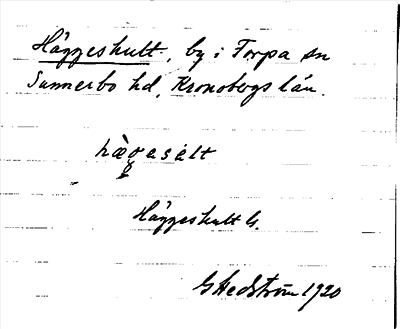 Häggeshult, by i Torpa sn
Sunnerbo hd, Kronobergs län.
hægasalt
Häggeshult G.
G Hedström 1920